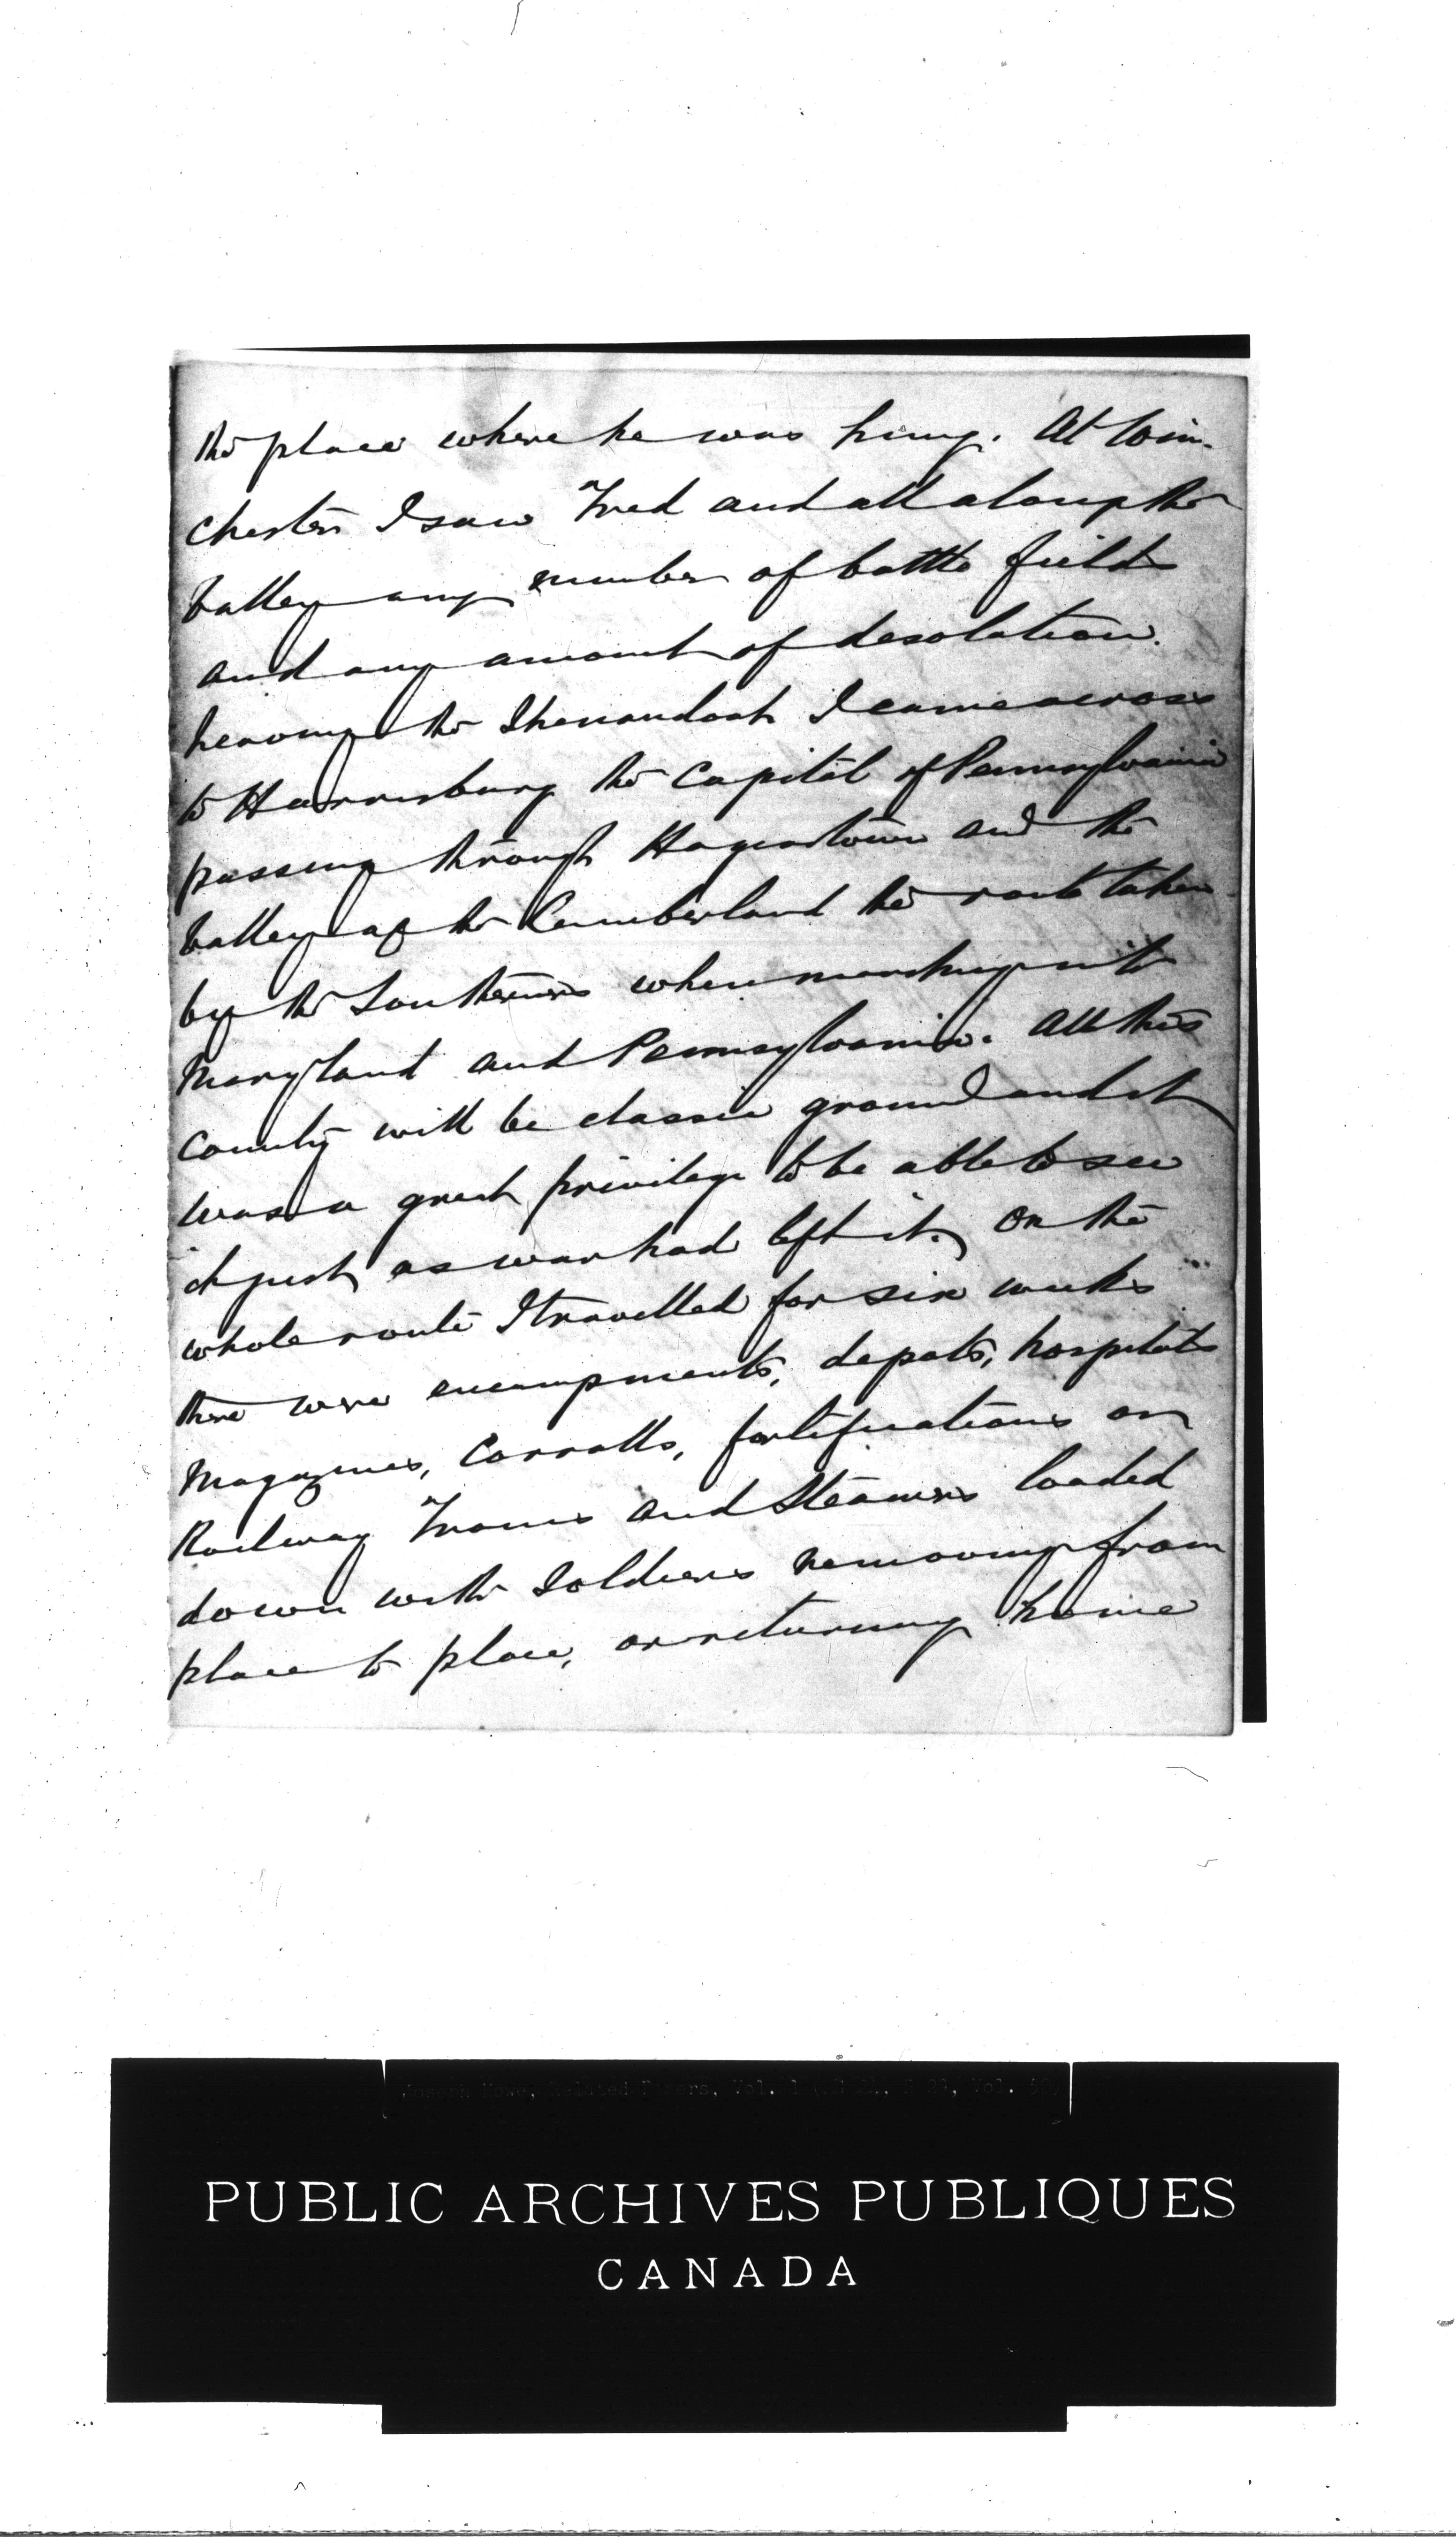 the place where he was hung. At Win-
chester I saw Fred and all along the
Valley any number of battle fields
and any amount of desolation.
Leaving the Shenandoah I came across
to Harrisburg the Capital of Pennsylvania
passing through Hagerstown and the
Valley of the Cumberland the route taken
by the Southerners when marching into
Maryland and Pennsylvania. All this
County will be classic ground and it
was a great privilege to be able to see
it just as war had left it. On the
whole route I travelled for six weeks
there were encampments, depots, hospitals
Magazines, Corralls, fortifications or
Railway Trains and Steamers loaded
down with Soldiers removing from
place to place, or returning home
Joseph Howe, Related Papers, Vol. 1 (MG 24, B 29, Vol.
PUBLIC ARCHIVES PUBLIQUES
CANADA